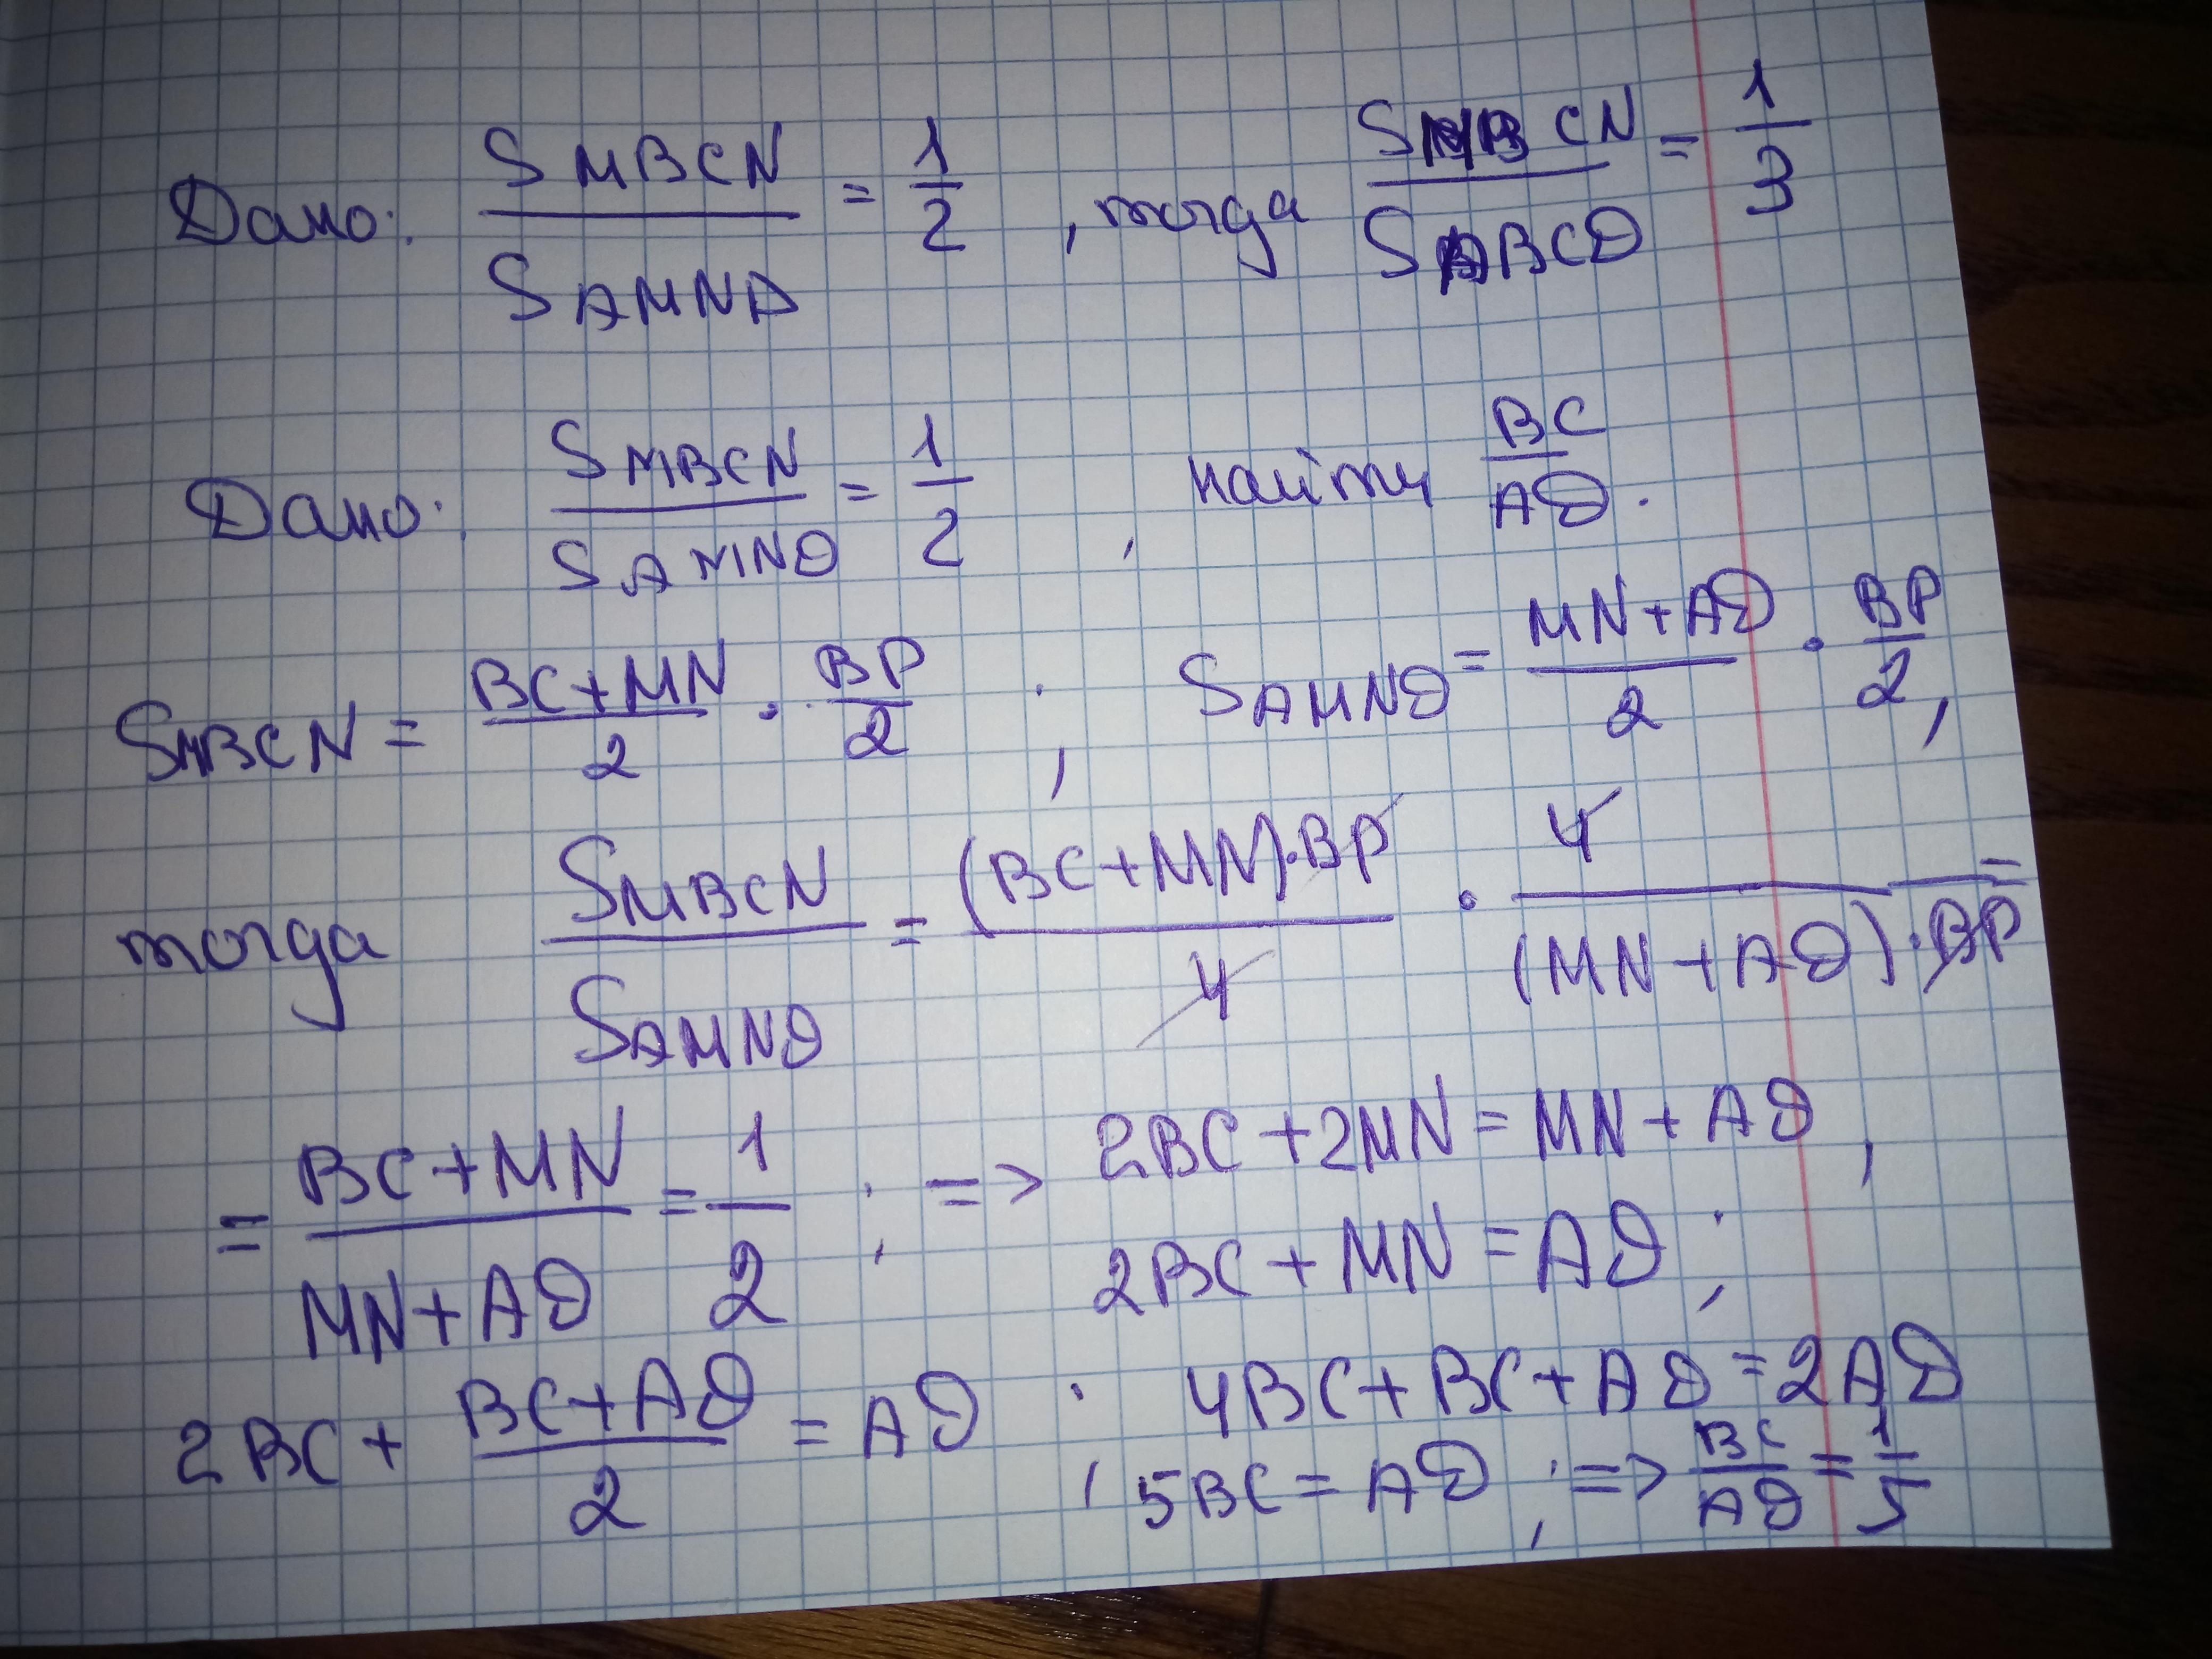 Дано: S MBCN / S AMND = 1/2 , тогда S MBCN / S ABCD = 1/3
Дано: S MBCN / S AMND = 1/2 , найти BC / AD .
S MBCN = (BC+MN)/2 · BP/2 ; S AMND = (MN+AD)/2 · BP/2 ,
тогда S MBCN / S AMND = (BC+MN)·BP / 4 · 4 / (MN+AD)·BP =
= (BC+MN) / (MN+AD) = 1/2 ; => 2BC+2MN=MN+AD ,
2BC+MN=AD ;
2BC+ (BC+AD)/2 = AD ; 4BC+BC+AD=2AD
5BC=AD ; => BC/AD = 1/5